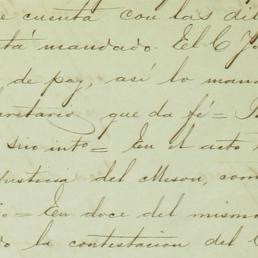 e cuenta con las dil
stá mandado. El C. J
de paz, así lo man
cretario que da fé = 
En el acto
Justicia del Meson, com
= En doce del mismo
la contestacion del C